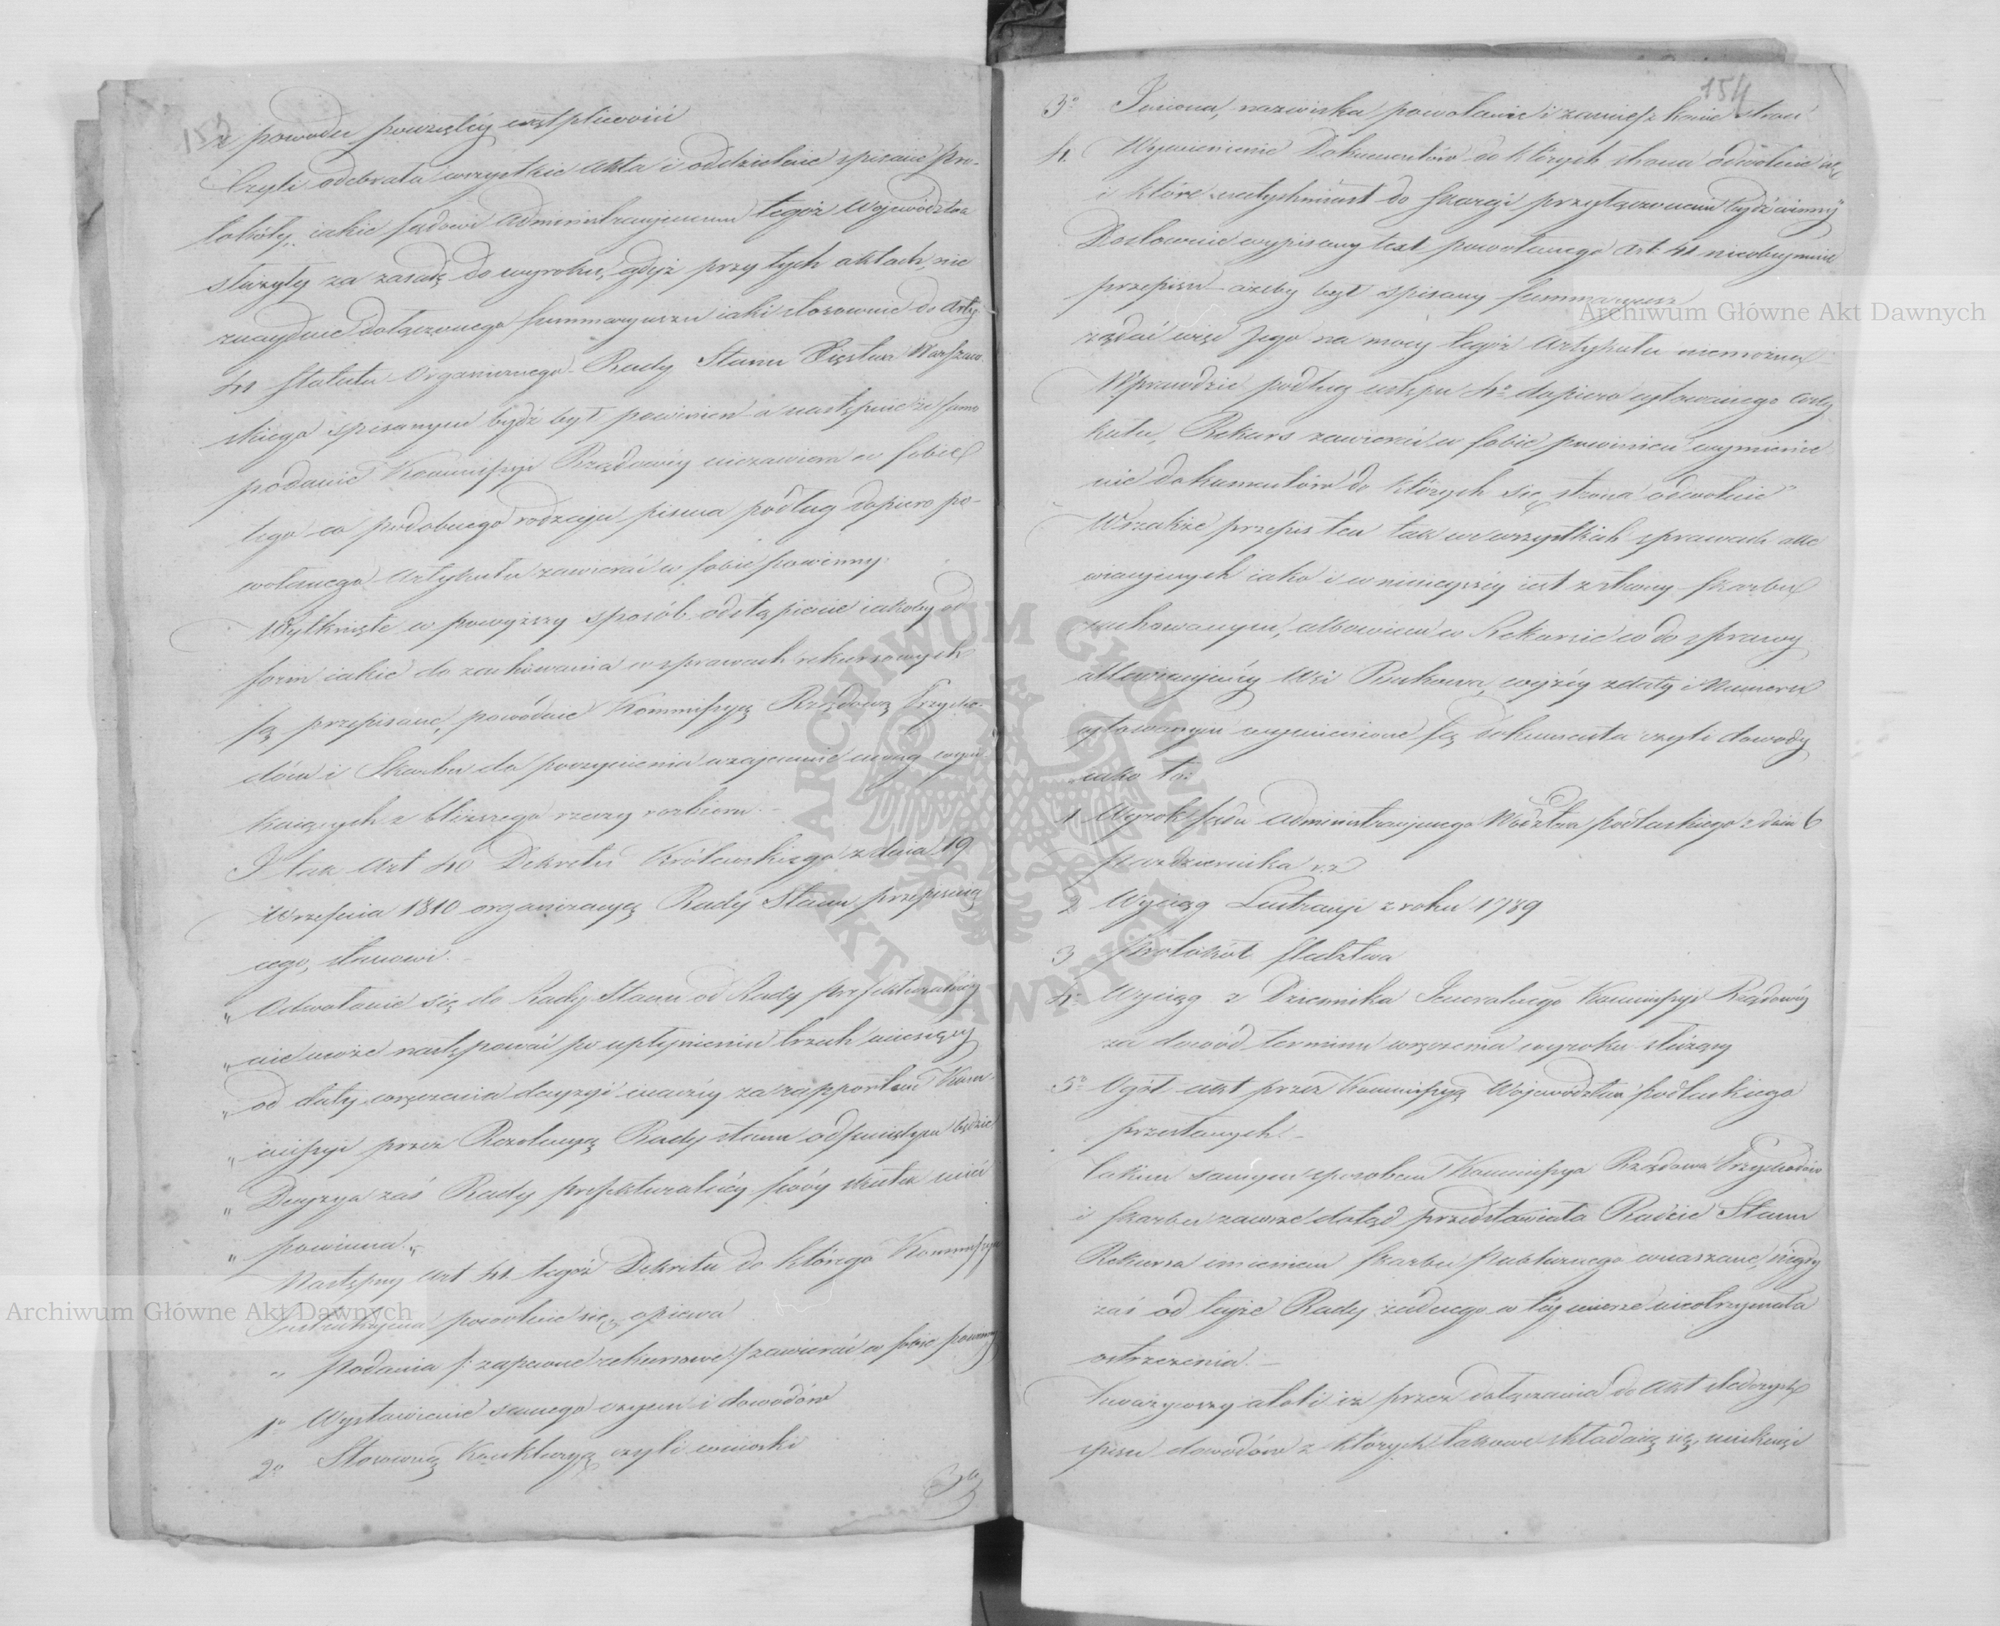 153
z powodu powziętéy wątpliwości
Czyli odebrała wszystkie akta i oddzielnie spisane Pro-
tokóły, iakie Sądowi Administracyjnemu tegoż Województwa
służyły za zasadę do wyroku, gdyż przy tych aktach, nie
znayduie dołączonego Summaryuszu iaki stosownie do Arty
41 Statutu Organicznego Rady Stanu Xięstwa Warszaw-
skiego spisanym bydź był powinien a następnie że samo
podanie Kommissyi Rządowéy niezawiera w sobie
tego co podobnego rodzaju pisma podług dopiero po-
wołanego Artykułu zawierać w sobie powinny.
Wytknięte w powyższy sposób odstąpienie iakoby od
form iakie do zachowania w sprawach rekursowych
są przepisane, powoduie Kommissyą Rządową Przycho-
dów i Skarbu do poczynienia wzajemnie uwag wyni-
kaiących z bliższego rzeczy rozbioru. –
I tak Art 40 Dekretu Królewskiego z dnia 19
Września 1810 organizacyą Rady Stanu przepisuią
cego, stanowi. –
„ Odwołanie się do Rady Stanu od Rady prefekturalnéy
„ nie może następować po upłynieniu trzech miesięcy
„ od daty wręczenia decyzyi inaczéy za rapportem Kom
„ missyi przez Rezolucyą Rady stanu odsunięta będzie
„ Decyzya zaś Rady prefekturalnéy swóy skutek mieć
„ powinna.„
Następny Art 41 tegoż Dekretu do którego Kommissya
Instrukcyjna powołuie się, opiewa
„ Podania /: zapewne rekursowe :/ zawierać w sobie powinny
1o Wystawienie samego czynu i dowodów
2o Stosowną Konkluzyą czyli wnioski
3o
154
3o Imiona, nazwiska powołanie i zamieszkanie stron
4. Wymienienie Dokumentów do których strona odwołuie się
i które natychmiast do skargi przyłączonemi bydź winny„
Dosłownie wypisany text powołanego Art 41 nieobeymuie
przepisu ażeby był spisany Summaryusz
żądać więc Jego na mocy tegoż Artykułu niemożna
Wprawdzie podług ustępu 4o dopiero cytowanego Arty
kułu, Rekurs zawierać w sobie powinien wymienie
nie dokumentów do których się strona odwołuie„
Wszakże przepis ten tak we wszystkich sprawach atte
wiących iako i w ninieyszéy iest z strony Skarbu
zachowanym, albowiem w Rekursie co do sprawy
Wsi wyżéy z daty i Numeru
cytowanym wymienione są dokumenta czyli dowody
iako to:
1 Wyrok Sądu Administracyjnego Wództwa podlaskiego z dnia 6
Października r.z
2 Wyciąg Lustracyi z roku 1789
3 Protokół śledztwa
4. Wyciąg z Dziennika Jeneralnego Kommissyi Rządowéy
za dowód terminu wręczenia wyroku służący
5o Ogół akt przez Kommissyą Województwa podlaskiego
przesłanych. –
Takim samym sposobem Kommissya Rządowa Przychodów
i Skarbu zawsze dotąd przedstawiała Radzie Stanu
Rekursa imieniem Skarbu Publicznego wnaszane, nigdy
zaś od teyże Rady żadnego w tey mierze nieotrzymała
ostrzeżenia. –
Zważywszy atoli iż przez dołączania do Akt śledczych
spisu dowodów z których takowe składaią się, uniknąć
Archiwum Główne Akt Dawnych
Archiwum Główne Akt Dawnych
ARCHIWUM GŁÓWNE AKT DAWNYCH